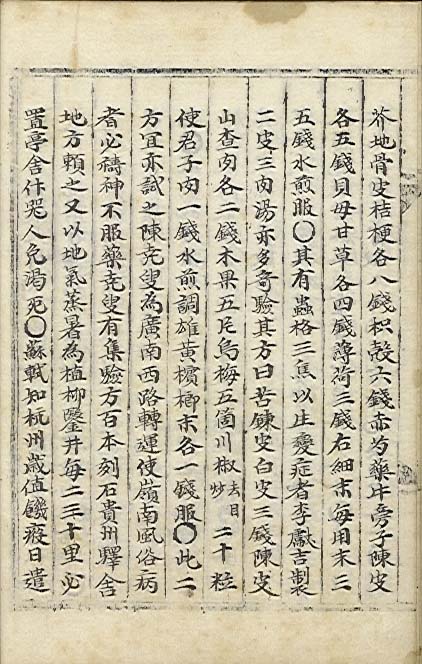 芥地骨皮桔梗各八錢枳殼六錢赤芍藥牛旁子陳皮
各五錢貝母甘草各四錢薄荷三錢右細末每用末三
五錢水煎服〇其有蟲格三焦以生變症者李獻吉製
二皮三肉湯亦多奇驗其方曰苦鍊皮白皮三錢陳皮
山查肉各二錢木果五片烏梅五箇川椒去目炒二十粒
使君子肉一錢水煎調雄黃檳榔末各一錢服〇此二
方宜亦試之陳堯叟為廣南西路轉運使嶺南風俗病
者必禱神不服藥堯叟有集驗方百本刻石貴州驛舍
地方賴之又以地氣蒸暑為植柳鑿井每二三十里必
置亭舍什噐人免渴死〇蘇軾知杭州歲值饑疫日遣